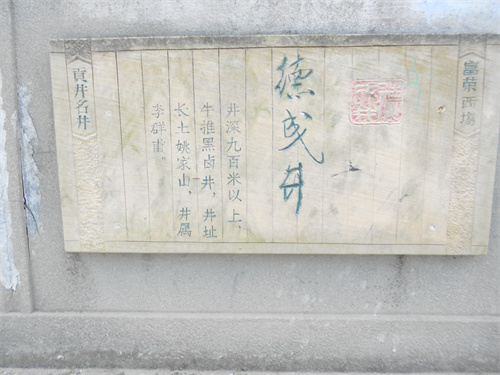 富荣西場
德成井
井深九百米以上，
牛推黑卤井，井址
长土姚家山，井属
李群甫。
貢井名井